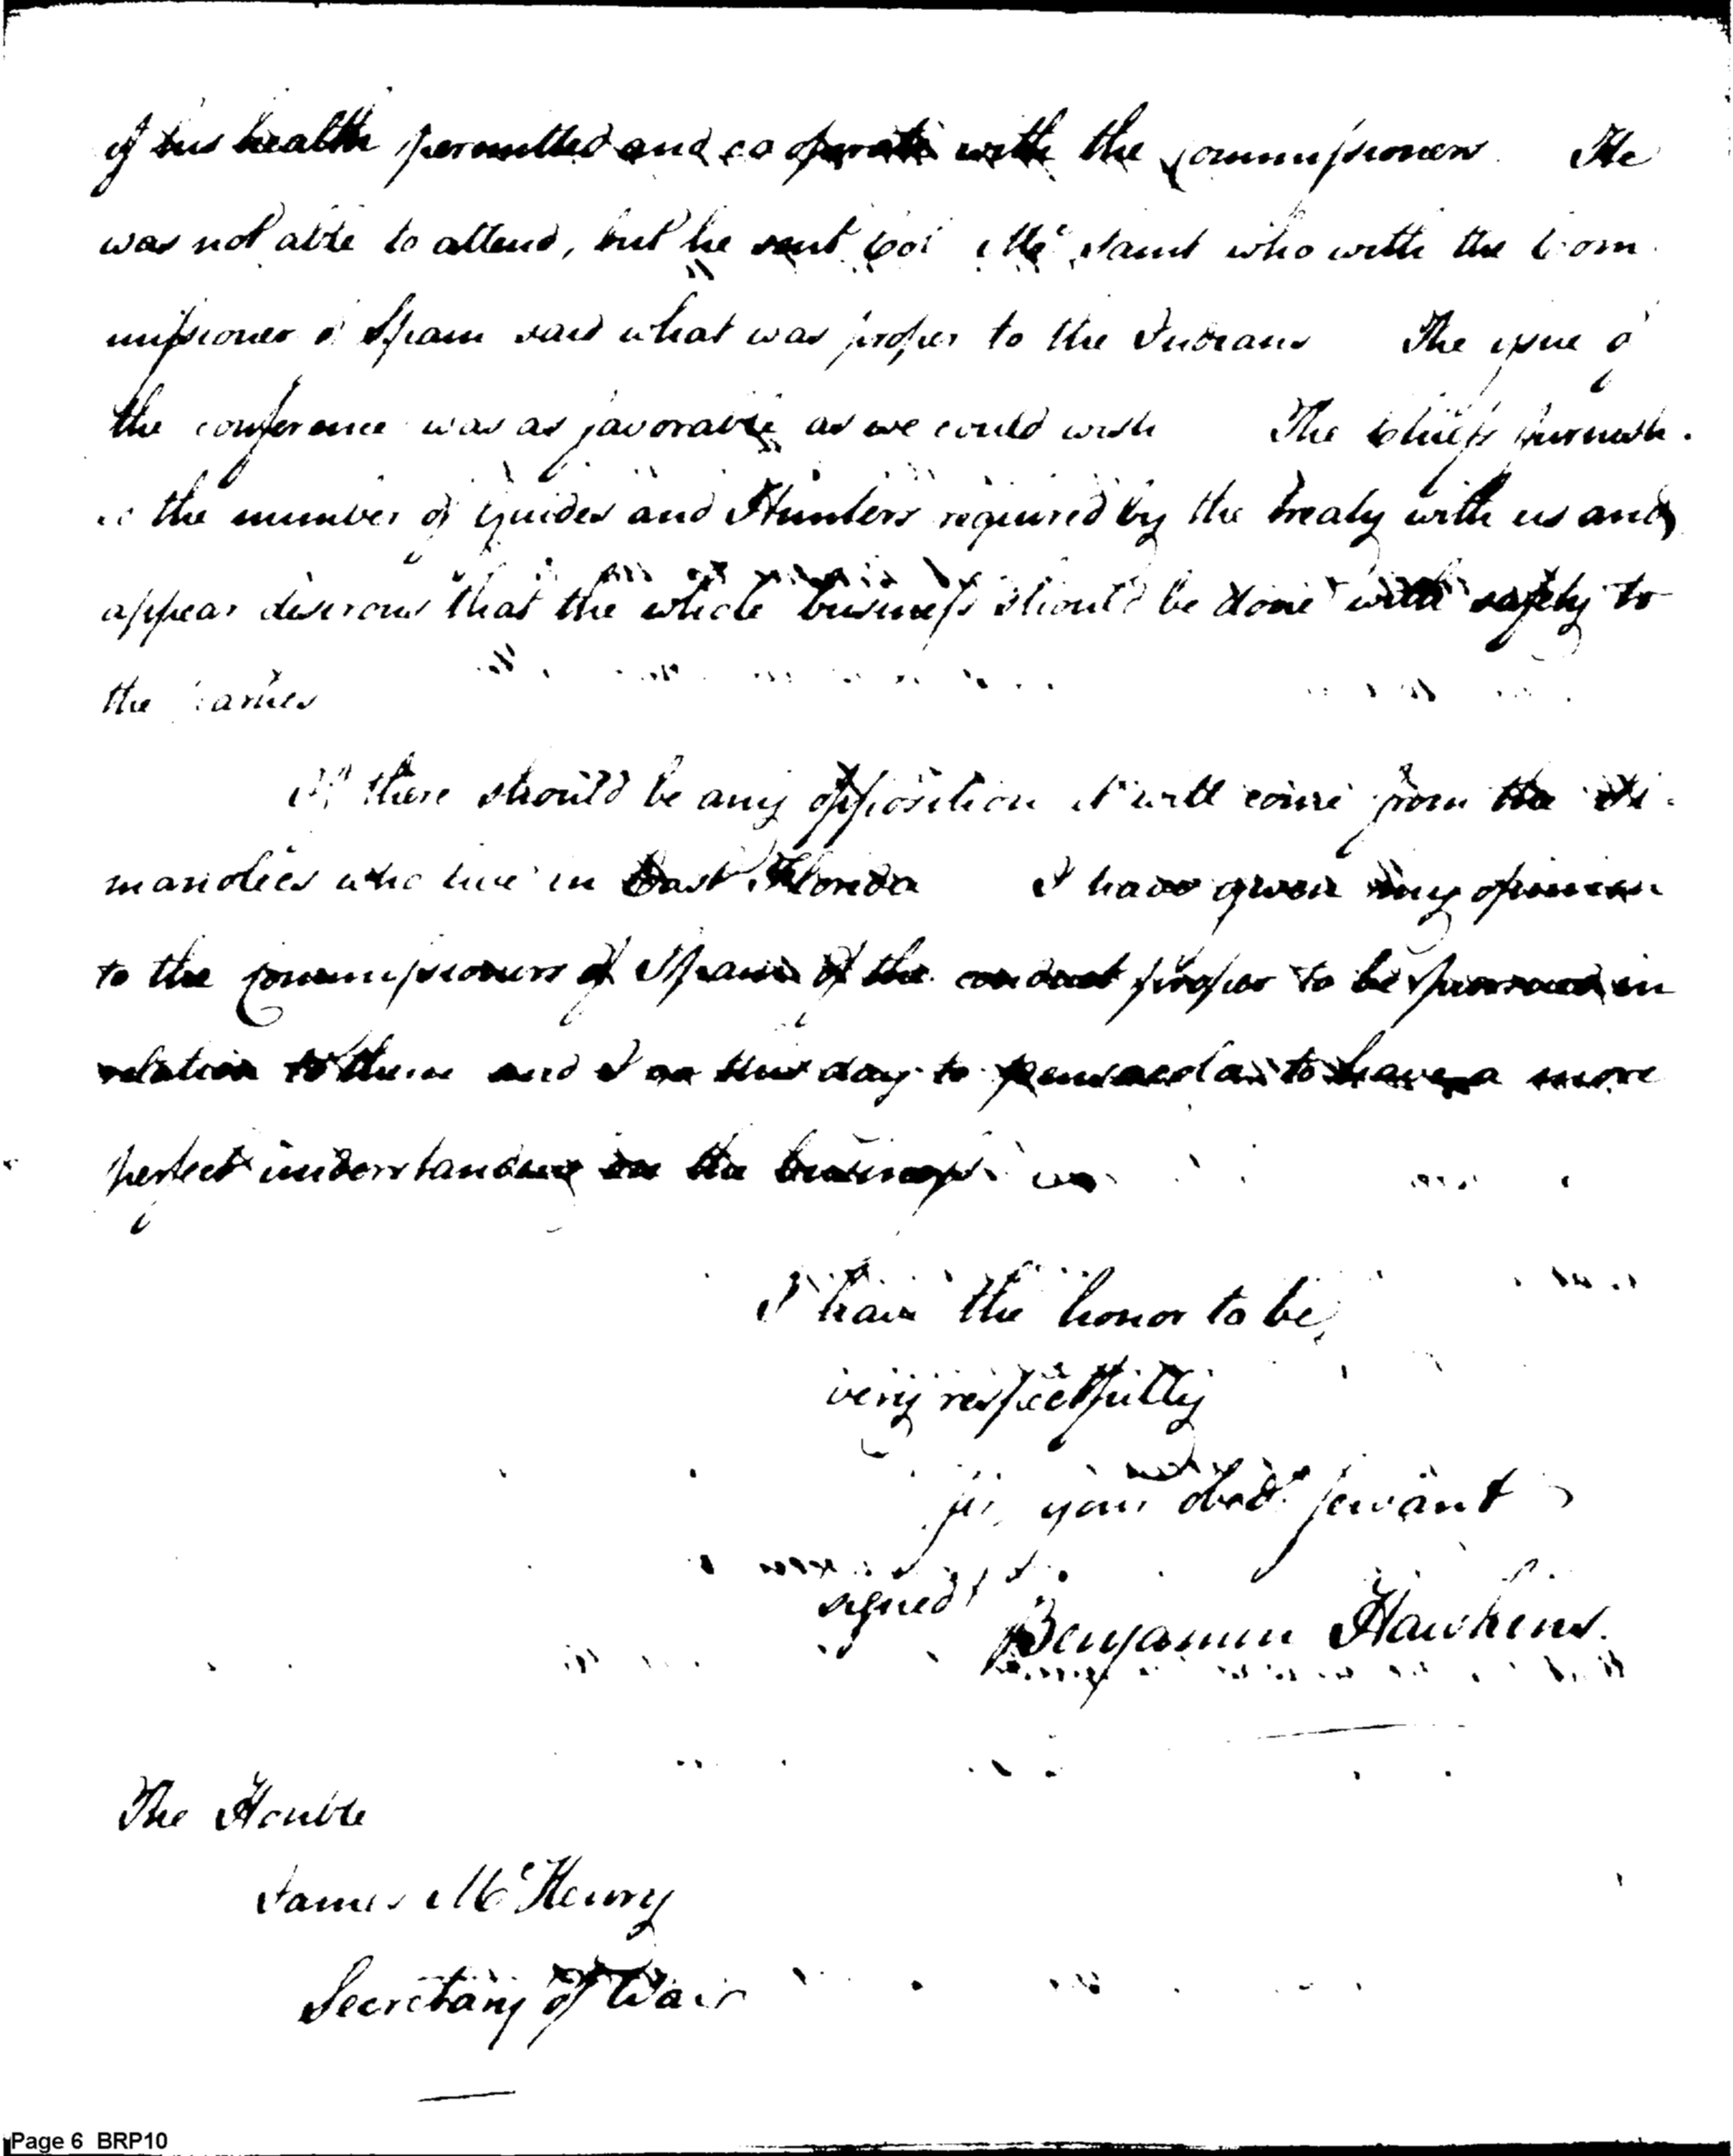 if his health permitted and co operate with the commissioners. He
was not able to attend, but he sent Col Mc who with the Com
missioner of Spain said what was proper to the Indians The issue of
the conference was as favorable as we could wish The Chiefs furnish.
ed the number of Guides and Hunters required by the treaty with us and
appear desirous that the whole business should be done with safety to
the parties
If there should be any opposition it will come from the Si-
manolees who live in East Florida I have given my opinion
to the commissioners of Spain of the conduct proper to be pursued in
relation to them and I go this day to pensacola to have a more
perfect understanding in the business
I have the honor to be,
very respectfully
your obedt. servant
signed
Benjamin Hawkins.
The Honble
James McHenry
Secretary of War
Page 6 BRP10